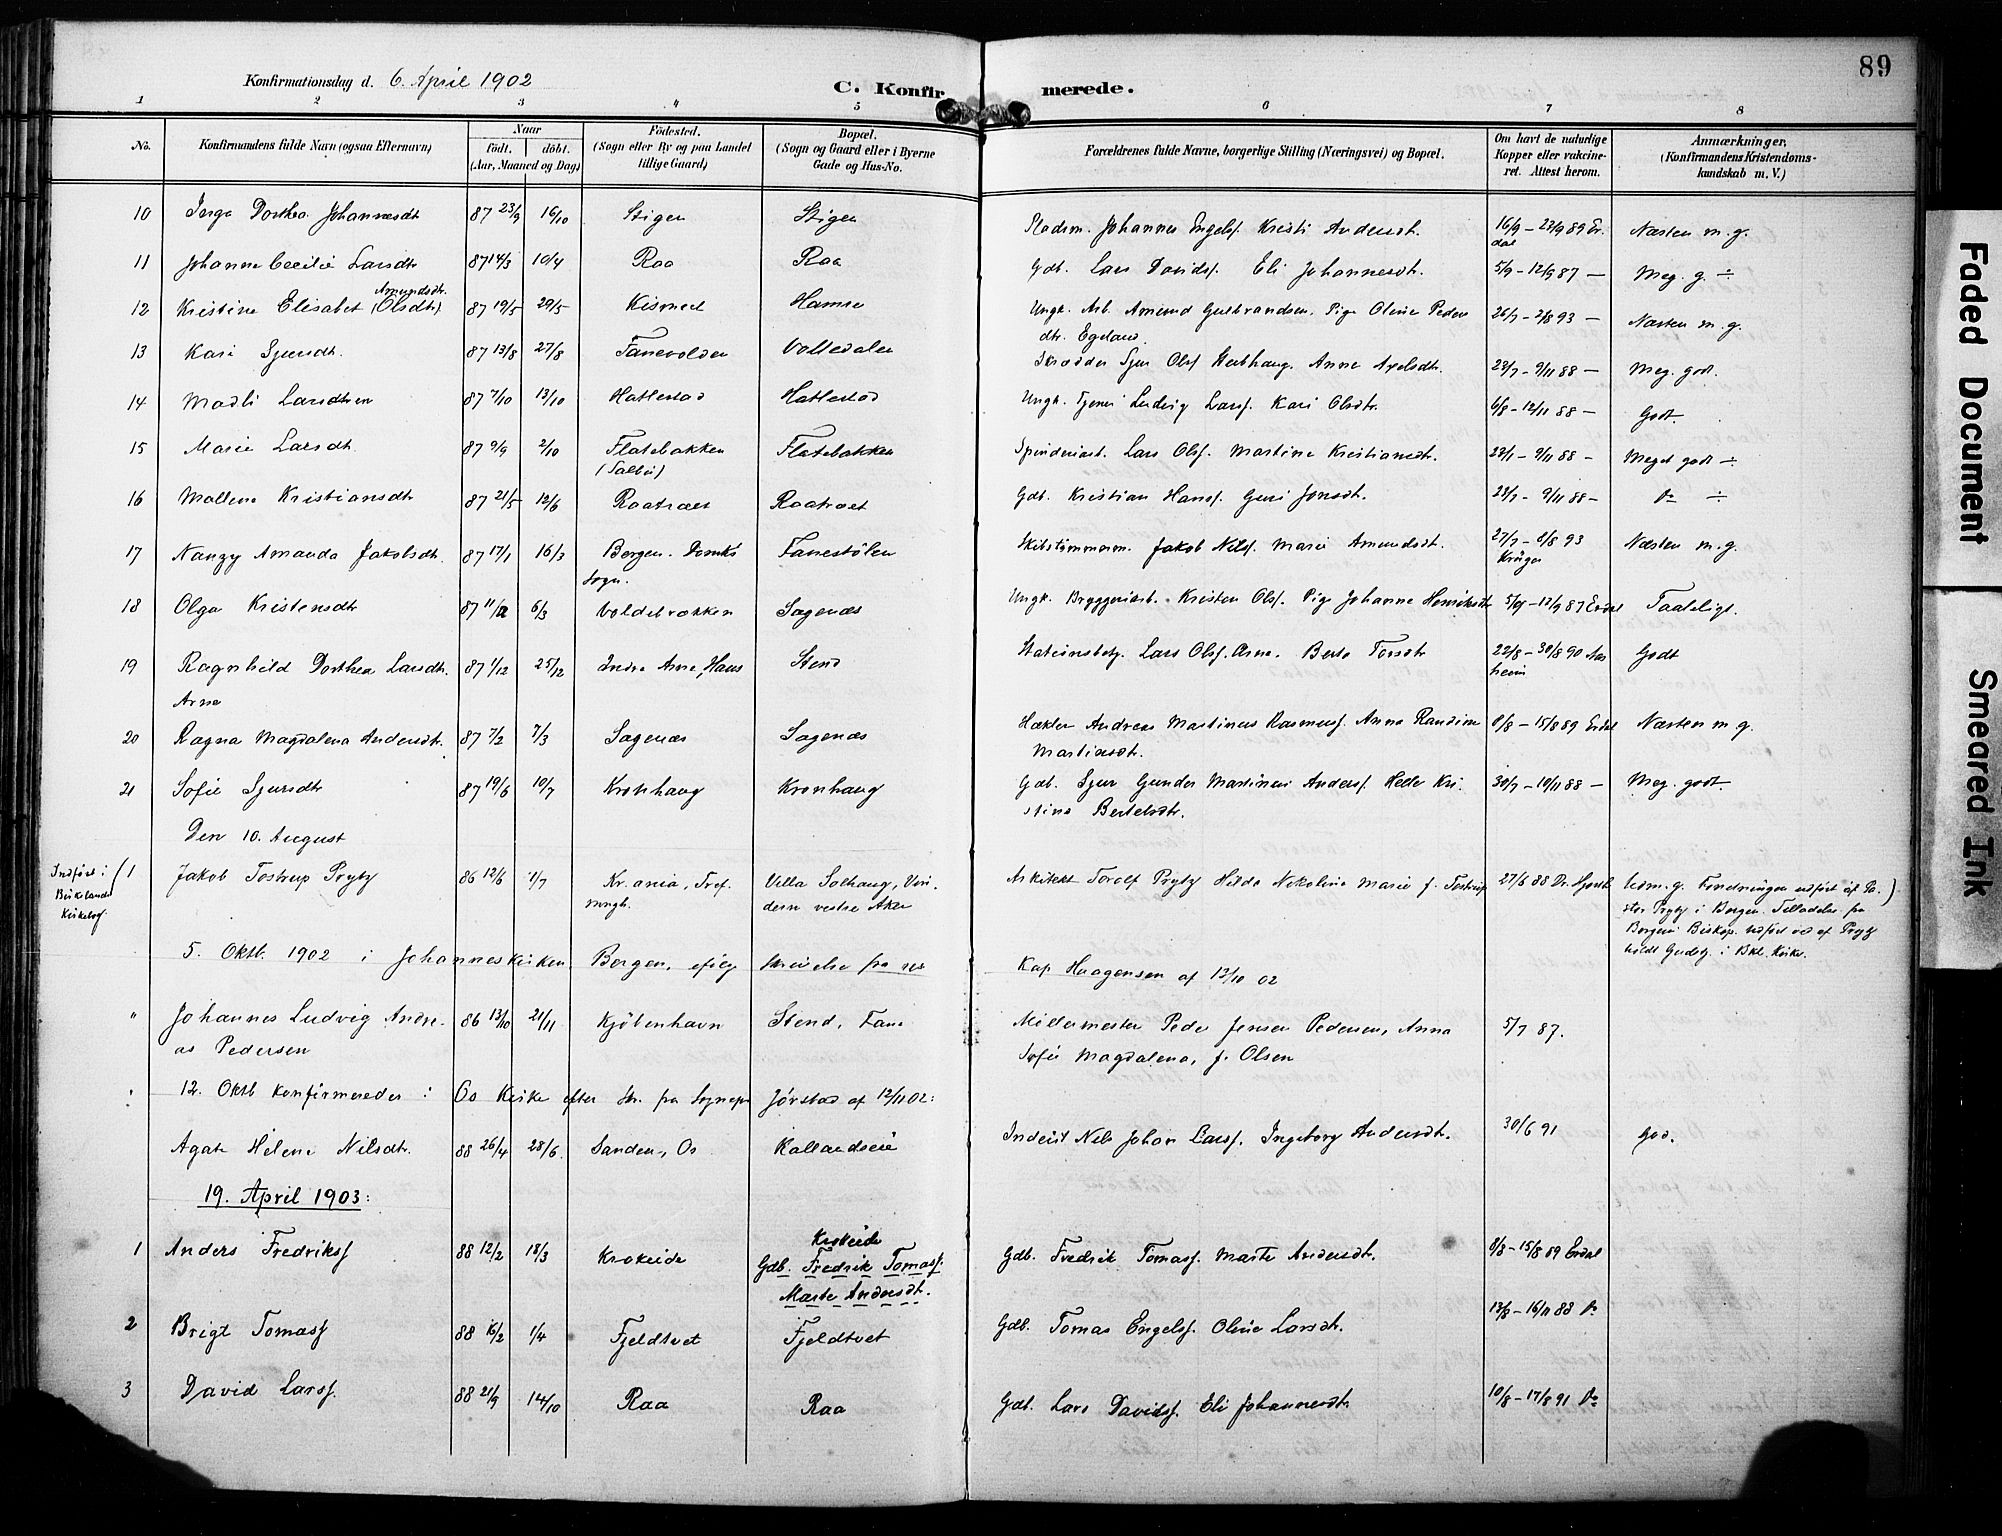 89
Konfirmationsdag d. 6. April 1902
C. Konfirmerede.
1 2 3 4 5 6 7 8
No. Konfirmandens fulde Navn (ogsaa Efternavn) Naar født. døbt. (Aar, Maaned og Dag) Fødested. (Sogn eller By og paa Landet tillige Gaard) Bopæl. (Sogn og Gaard eller i Byerne Gade og Hus-No. Forældrenes fulde Navne, borgerlige Stilling (Næringsvei) og Bopæl. Om havt de naturlige Kopper eller vakcineret. Attest herom. Anmærkninger. (Konfirmandens Kristendomskundskab m. V.)
10 Inga Dorthea Johannesdt 87 23/9 16/10 Stigen Stigen Pladsm. Johannes Engelsf. Kristi Andersdt. 16/9 - 23/9 89 Erdal Næsten m. g.
11 Johanne Cecilie Larsdtr 87 14/3 10/4 Raa Raa Gdb. Lars Davidsf. Eli Johannesdt. 5/9 - 12/9 87 — Meg. g. ÷
Amundsdtr.
12 Kristine Elisabet (Olsdtr) 87 19/5 29/5 Kismed Hamre Ungk. Arb. Amund Gulbrandsen. Pige Oline Peders 26/7 - 2/8 93 — Næsten m. g.
dtr. Egeland
13 Kari Sjursdt. 87 13/8 27/8 Fanevolden Voltedalen Skrædder Sjur Olsf Anne Axelsdtr. 9/11 88 — Meg. godt.
14 Madli Larsdtren 87 7/10 13/10 Hatlestad Hatlestad Ungk. Tjener Ludvig Larsf. Kari Olsdtr. 6/8 - 12/11 88 — Godt.
15 Marie Larsdt. 87 9/9 2/10 Flatebakken Flatebakken Spinderiarb. Lars Olsf. Martine Kristiansdtr. 9/11 88 - Meget godt ÷
(Salbu)
16 Mallene Kristiansdt 87 21/5 12/6 Raatræet Raatræet Gdb. Kristian Hansf. Guri Jonsdt. 9/11 88 - Do ÷
17 Nanzy Amanda Jakobsdt. 87 17/1 16/3 Bergen. Domk's Fanestølen Skibstømmerm. Jakob Nilsf. Marie Amundsdt. 27/7 - 2/8 93 Næsten m. g.
sogn. Krüger
18 Olga Kristensdt 87 11/2 6/3 Voldebrækken Sagenæs Ungk. Bryggeriarb. Kristen Olsf. Pige Johanne Henriksdt 5/9 - 12/9 87 Erdal Taaleligt.
19 Ragnhild Dorthea Larsdt. 87 1/12 25/12 Indre Arne, Haus Stend Stationsbetj. Lars Olsf. Arne. Berta Torsdt 22/8 - 30/8 90 Godt
Arne heim
20 Ragna Magdalena Andersdtr. 87 7/2 7/3 Sagenæs Sagenæs Hækler Andreas Martinus Rasmusf. Anna Randine 8/8 - 15/8 89 Erdal Næsten m. g.
Martinsdt.
21 Sofie Sjursdt 87 19/6 10/7 Kronhaug Kronhaug Gdb. Sjur Gunder Martinus Andersf. Helle Kri- 30/7 - 10/11 88 — Meg. godt
stine Bertelsdtr.
Den 10. August
Indført i Birkelands Kirkebog.
1 Jakob Tostrup Prytz 86 12/6 1/7 Kr.ania, Tref. Villa Solhaug, Vin- Arkitekt Torolf Prytz Hilda Nikoline Marie f. Tostrup 27/6 88 Dr. Hjort Udm. g. Forretningen udført af Pa-
mngh. dern vestre Aker
stor Prytz i Bergen. Tilladelse fra
Bergens Biskop. udført ved af Prytz
holdt Gudstj. i Bkl. Kirke.
5. Oktb. 1902 i Johanneskirken Bergen, eftlg skrivelse fra res Kap Haagensen af 13/10 02
" Johannes Ludvig Andre- 86 13/10 21/11 Kjøbenhavn Stend, Fane Møllermester Peder Jensen Pedersen, Anna 5/7 87.
as Pedersen Sofie Magdalena, f. Olsen
" 12. Oktb konfirmeredes i Os Kirke efter Skr. fra Sognepr Jørstad af 12/11 02:
Agate Helene Nilsdtr. 88 26/4 28/6 Sanden, Os Kallandseie Inderst Nils Johan Larsf. Ingeborg Andersdt. 30/6 91 God.
19. April 1903:
1 Anders Fredriksf 88 12/2 18/3 Krokeide Krokeide Gdb. Fredrik Tomasf. Marte Andersdt. 8/8 - 15/8 89 Erdal
Gdb. Fredrik Tomasf.
Marte Andersdt.
2 Brigt Tomasf 88 16/2 1/4 Fjeldtvet Fjeldtvet Gdb. Tomas Engelsf. Oline Larsdt. 13/8 - 16/11 88 Do
3 David Larsf. 88 21/9 14/10 Raa Raa Gdb. Lars Davidsf. Eli Johannesdt 10/8 - 17/8 91 Do
Faded Document
Smeared Ink